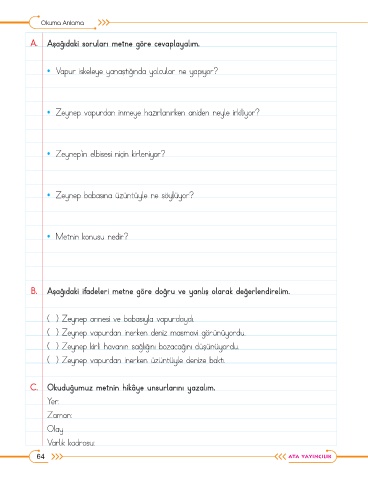 Okuma Anlama
A. Aşağıdaki soruları metne göre cevaplayalım.
• Vapur iskeleye yanaştığında yolcular ne yapıyor?
• Zeynep vapurdan inmeye hazırlanırken aniden neyle irkiliyor?
• Zeynep'in elbisesi niçin kirleniyor?
• Zeynep babasına üzüntüyle ne söylüyor?
• Metnin konusu nedir?
B. Aşağıdaki ifadeleri metne göre doğru ve yanlış olarak değerlendirelim.
(  ) Zeynep annesi ve babasıyla vapurdaydı.
(  ) Zeynep vapurdan inerken deniz masmavi görünüyordu.
(  ) Zeynep kirli havanın sağlığını bozacağını düşünüyordu.
(  ) Zeynep vapurdan inerken üzüntüyle denize baktı.
C. Okuduğumuz metnin hikâye unsurlarını yazalım.
Yer:
Zaman:
Olay:
Varlık kadrosu:
64
ATA YAYINCILIK